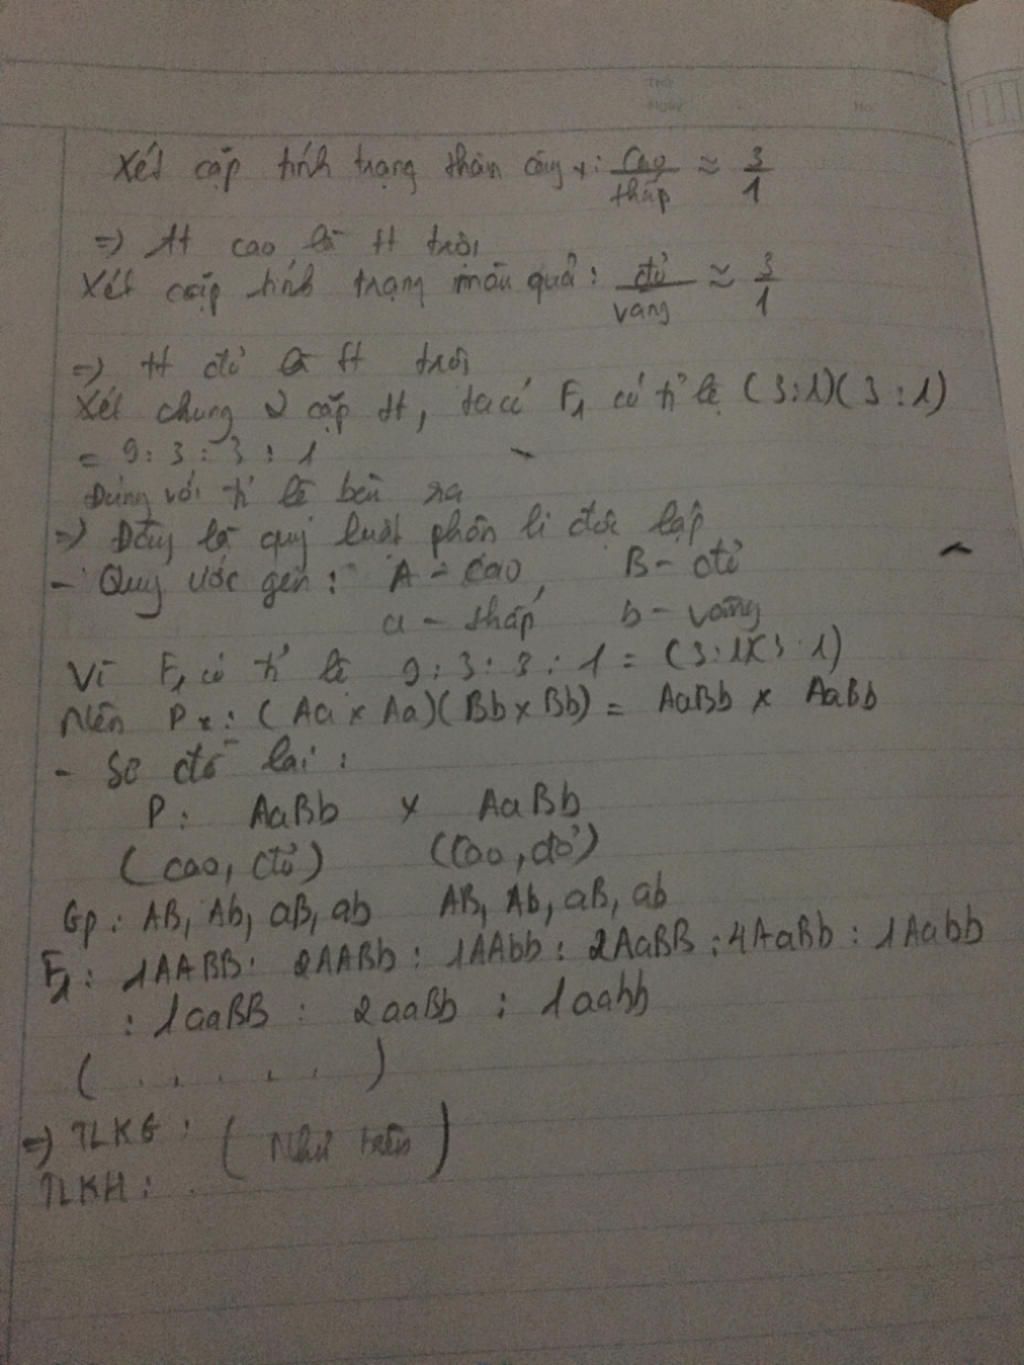 Xét cặp tính trạng thân cây: cao/thấp ≈ 3/1
=) tt cao là tt trội
Xét cặp tính trạng màu quả: đỏ/vàng ≈ 3/1
=) tt đỏ là tt trội
Xét chung 2 cặp tt, ta có F1 có tỉ lệ (3:1)(3:1)
= 9:3:3:1
Đúng với tỉ lệ bên ra
=) Đây là quy luật phân li độc lập
- Quy ước gen: A - cao B - đỏ
a - thấp b - vàng
Vì F1 có tỉ lệ 9:3:3:1 = (3:1)(3:1)
Nên P: (Aa x Aa)(Bb x Bb) = AaBb x AaBb
- Sơ đồ lai:
P: AaBb x AaBb
(cao, đỏ) (cao, đỏ)
Gp: AB, Ab, aB, ab AB, Ab, aB, ab
F1: 1AABB: 2AABb: 1AAbb: 2AaBB: 4AaBb: 1Aabb
: 1aaBB: 2aaBb: 1aabb
(.....)
=) TLKG: (Như trên)
TLKH: